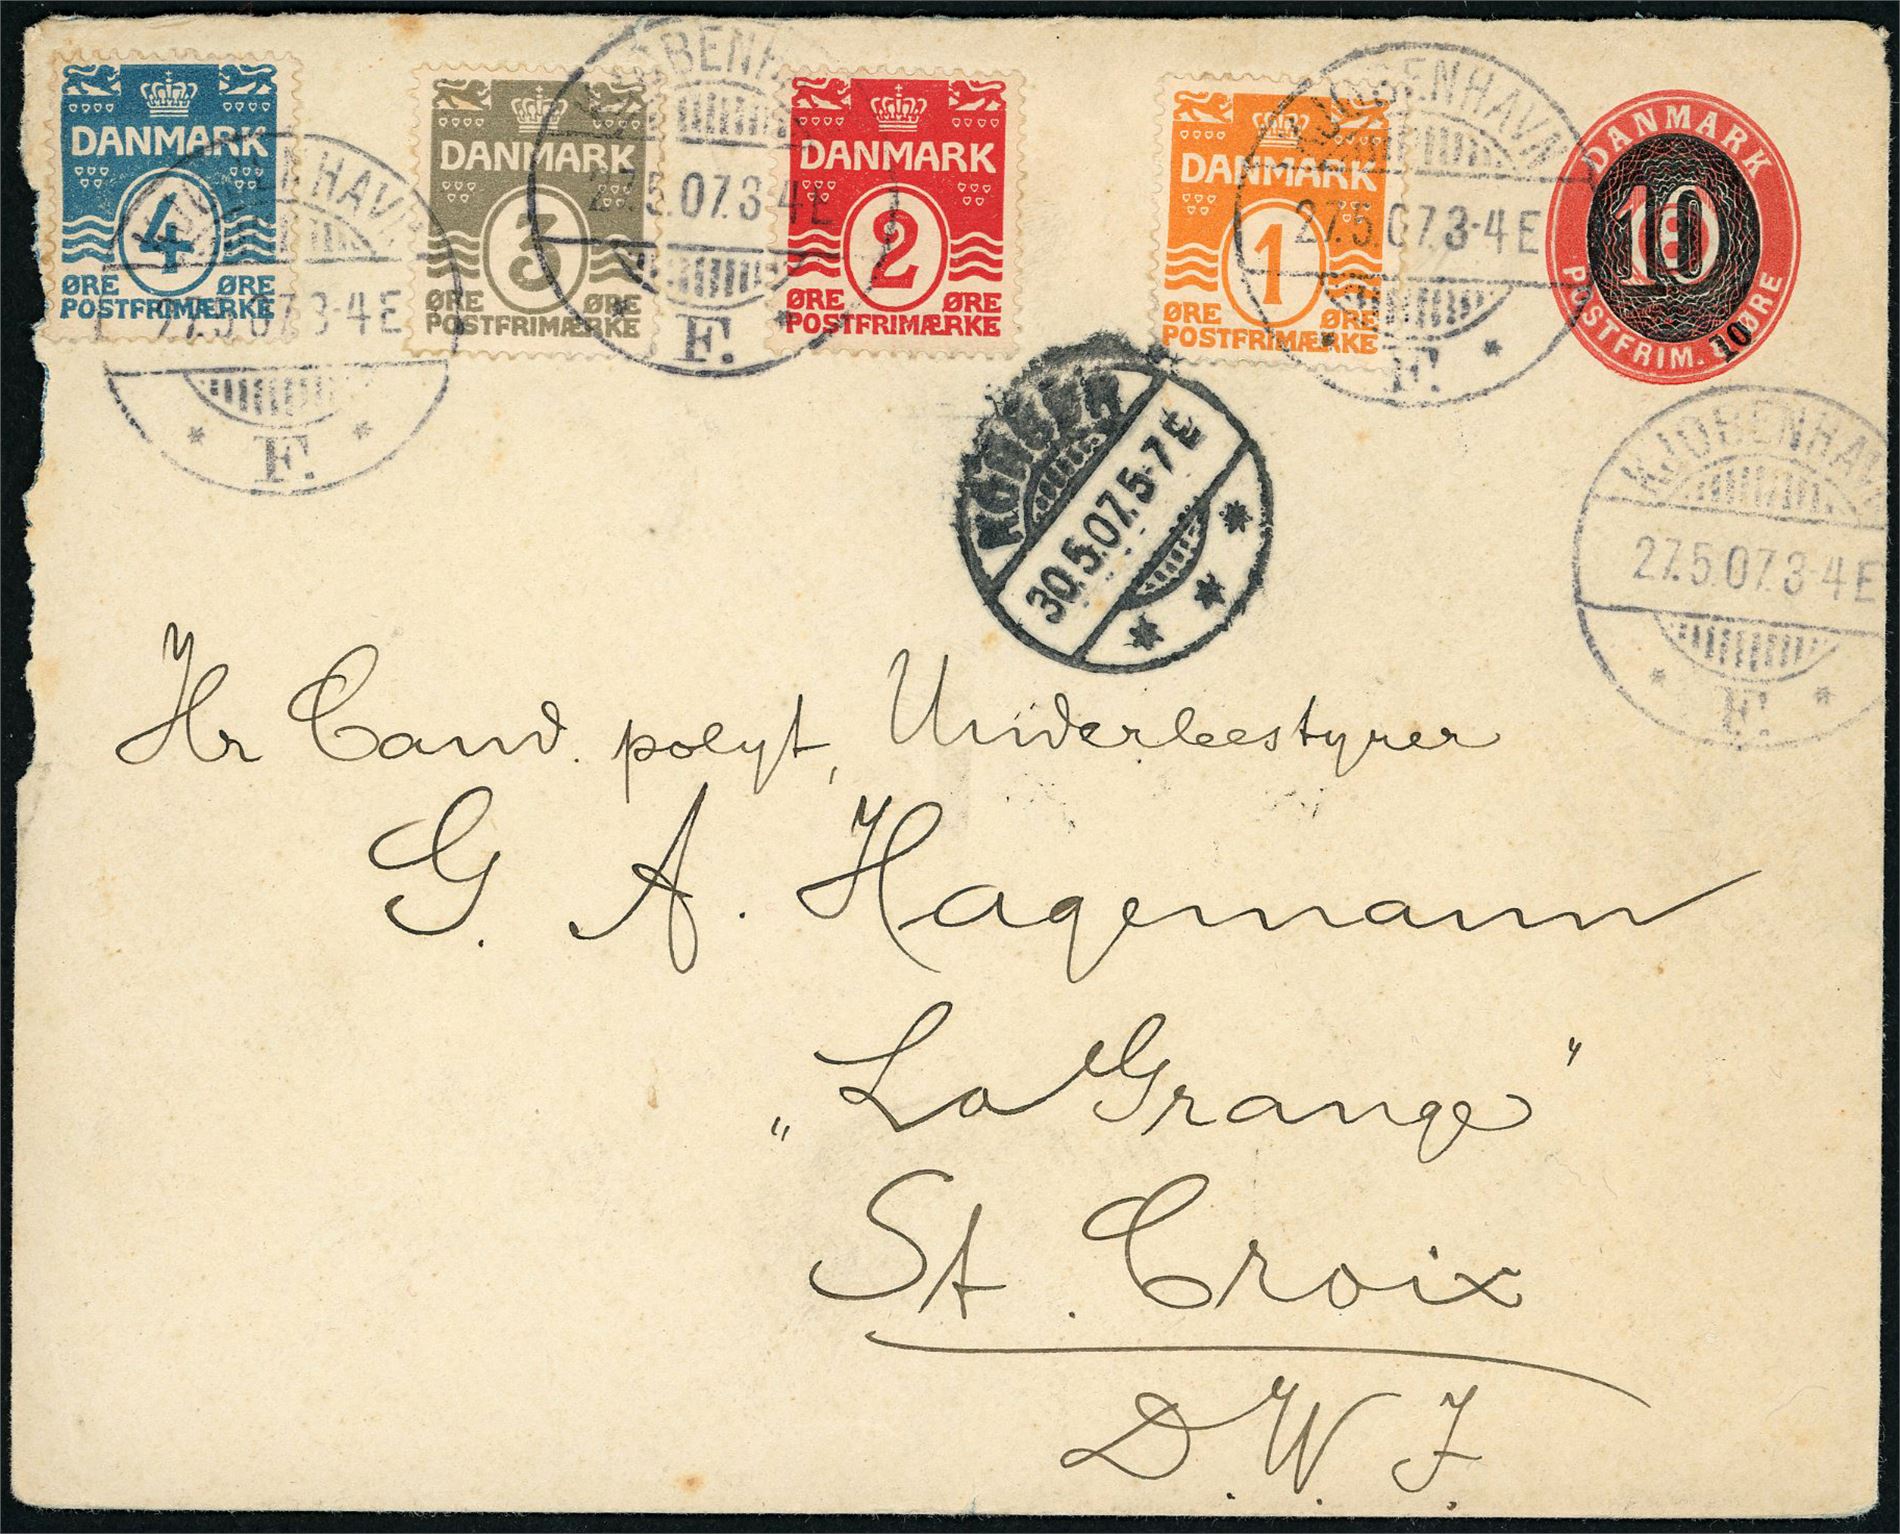 DANMARK
4
ØRE ØRE
POSTFRIMÆRKE
DANMARK
3
ØRE ØRE
POSTFRIMÆRKE
DANMARK
2
ØRE ØRE
POSTFRIMÆRKE
DANMARK
1
ØRE ØRE
POSTFRIMÆRKE
DANMARK
10
POSTFRIM. ØRE
10
KJØBENHAVN
27.5.07.3-4E
F.
KJØBENHAVN
27.5.07.3-4E
F.
KJØBENHAVN
27.5.07.3-4E
F.
KJØBENHAVN
27.5.07.3-4E
F.
30.5.07.5-7E
Hr Cand. polyt, Underbestyrer
G. A. Hagemann
„La Grange"
St. Croix
D. W. I.